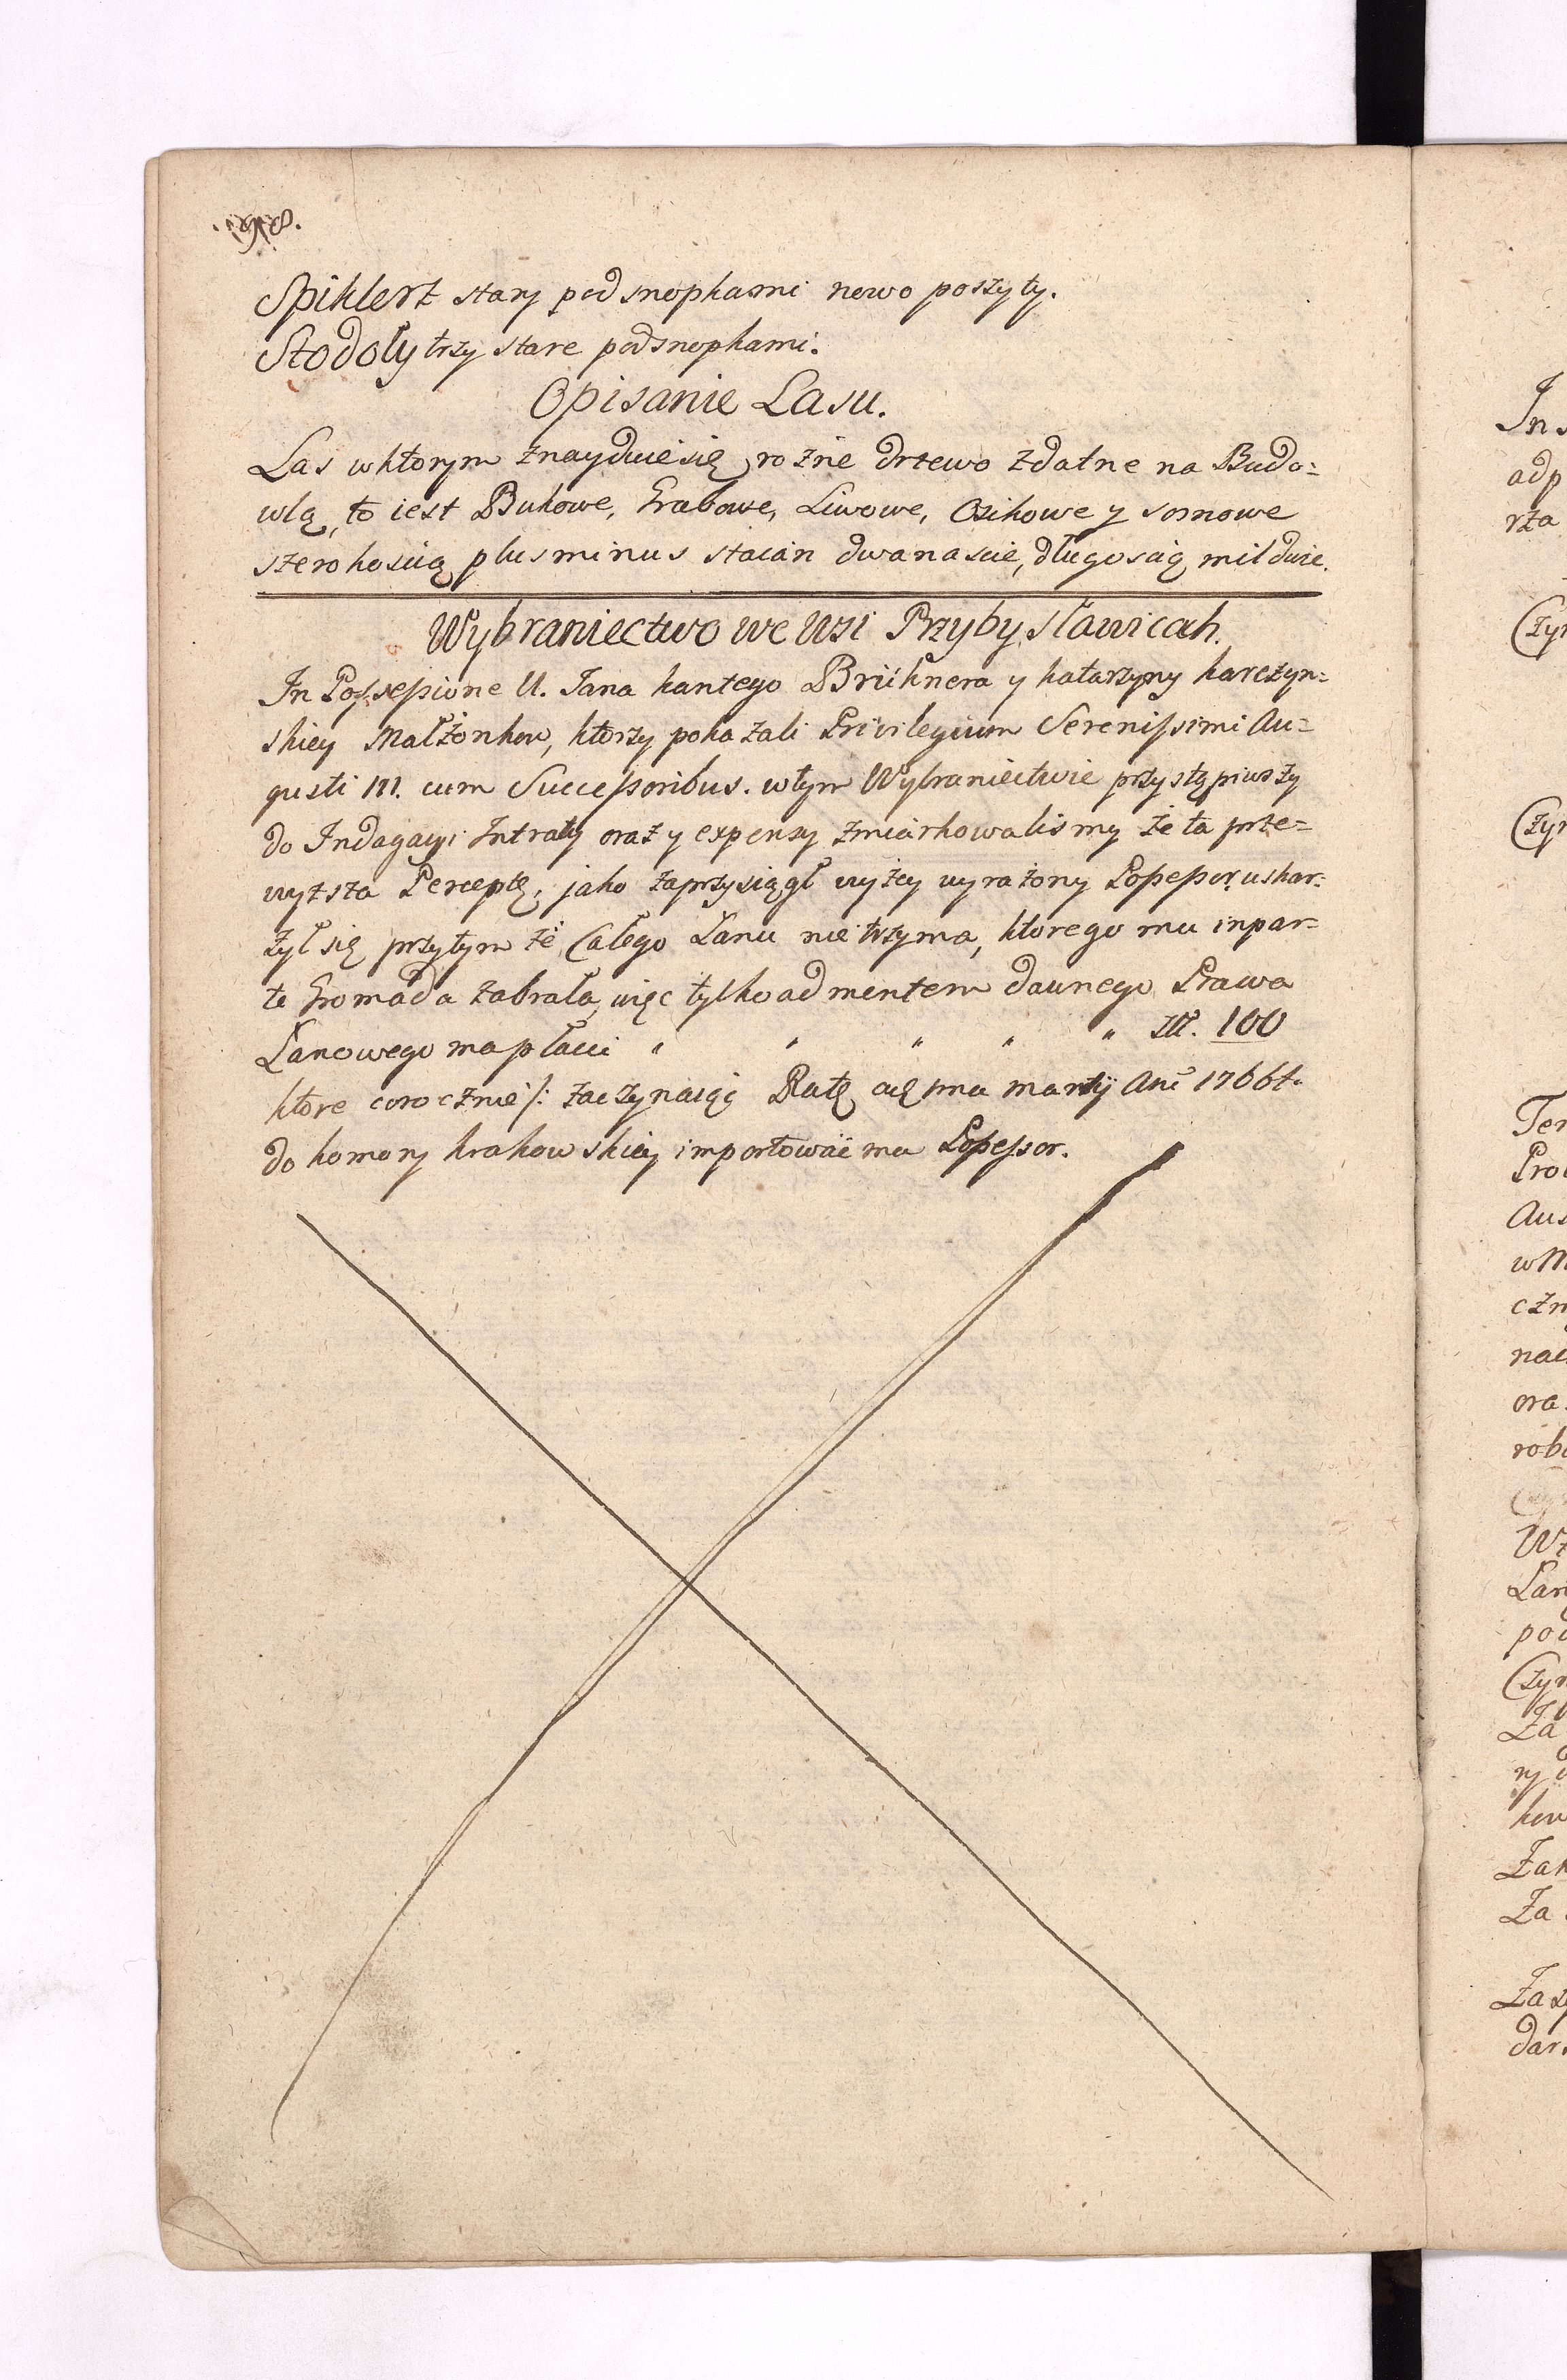 Spiklerz stary pod snopkami nowo poszyty.
Stodoły trzy stare pod snopkami.
Opisanie Lasu.
Las w ktorym znayduie się rożne drzewo zdatne na Budo=
wlą, to iest Bukowe, Grabowe, Liwowe, Osikowe y sosnowe
szerokoscią plus minus staián dwanascie, długoscią mil dwie.
Wybraniectwo we Wsi Przybysławicach.
In Possessione U. Jana kantego Brüknera y katarzyny karczyn=
skiey Małżonkow, ktorzy pokazali Privilegium Serenissimi Au=
gusti III. cum Successoribus. w tym Wybraniectwie przystąpiwszy
do Indagacyi Intraty oraz y expensy zmiarkowalismy że ta prze=
wyższa Perceptę, jako zaprzysiągł wyżey wyrażony Possessor, uskar=
żył się przytym że Całego Łanu nie trzyma, ktorego mu in par=
te Gromada zabrała, więc tylko ad mentem dawnego Prawa
Łanowego ma płacić " " " " " Zł. 100
ktore corocznie /: zaczynaiąc Ratę a 1ma martij Ani 1766t.
do komory krakowskiey importować ma Possessor.
In
adp
rza
Czyn
Czyn
Ter
Prou
Aus
w M
czn
nau
ora
robo
Łan
pod
Czyn
Za
ry d
kow
Zak
Za
Zasp
dar